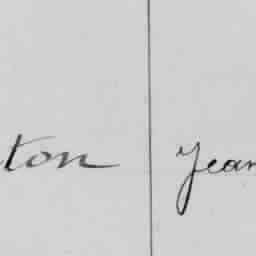 ton Jean